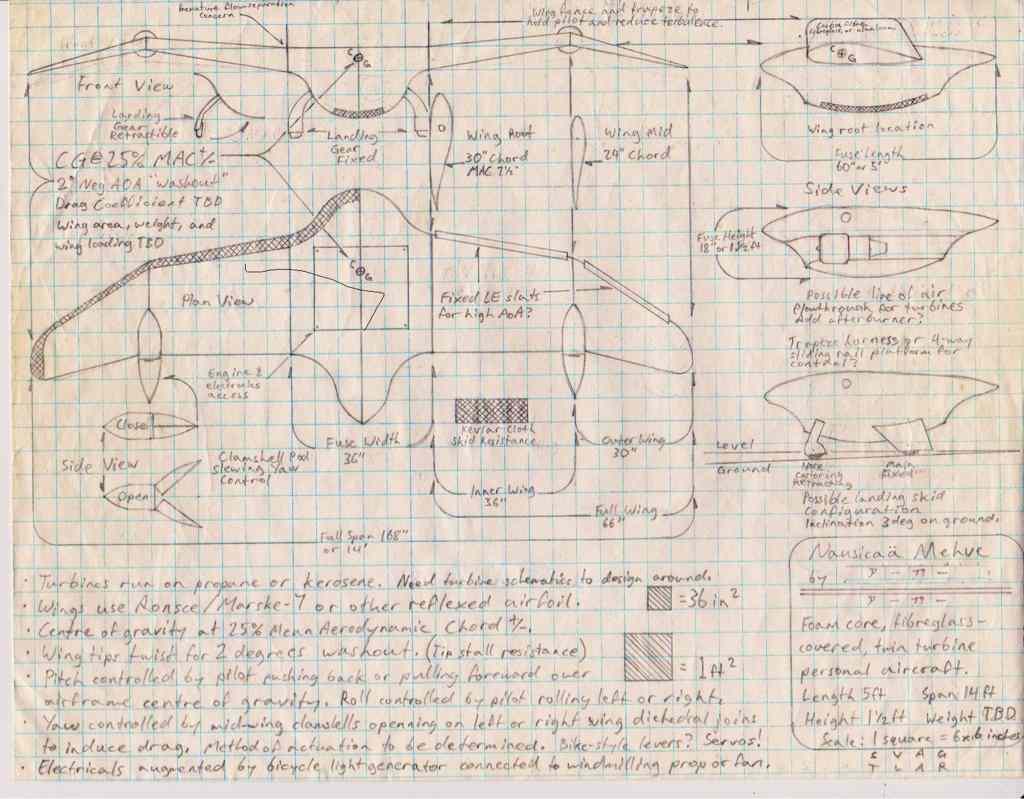 Premature flow separation
concern
Wing fence and trapeze to
hold pilot and reduce turbulence.
Front View
C G
C G
Landing
Gear
Retractible
Landing
Gear
Fixed
Wing Root
30" Chord
MAC 7½"
Wing Mid
24" Chord
Wing root location
Fuse Length
60" or 5'
Side Views
CG@25% MAC+/-
2° Neg AOA "washout"
Drag Coefficient TBD
Wing area, weight, and
wing loading TBD
Fuse Height
18" or 1½ft
C G
Plan View
Fixed LE slats
for high AoA?
Possible line of air
flowthrough for turbines
Add afterburner?
Trapeze harness or 4-way
sliding rail platform for
control?
Engine &
electronics
access
Close
Side View
Open
Clamshell Pod
Slewing Yaw
Control
Fuse Width
36"
Kevlar Cloth
Skid Resistance
Outer Wing
30"
Inner Wing
36"
Full Wing
66"
Full Span 168"
or 14'
Level
Ground
Nose
Castoring
Retracting
Main
Fixed
Possible landing skid
configuration
Inclination 3deg on ground.
· Turbines run on propane or kerosene. Need turbine schematics to design around.
· Wings use Ronsce/Marske-7 or other reflexed airfoil.
= 36in²
· Centre of gravity at 25% Mean Aerodynamic Chord +/-.
· Wing tips twist for 2 degrees washout. (Tip stall resistance)
= 1ft²
· Pitch controlled by pilot pushing back or pulling forward over
airframe centre of gravity. Roll controlled by pilot rolling left or right.
· Yaw controlled by midwing clamshells openning on left or right wing diehedral joins
to induce drag. Method of actuation to be determined. Bike-style levers? Servos!
· Electricals augmented by bicycle light generator connected to windmilling prop or fan.
Nausicaä Mehve
by
Foam core, fibreglass-
covered, twin turbine
personal aircraft.
Length 5ft Span 14ft
Height 1½ft Weight TBD
Scale: 1 square = 6x6 inches
S V A G
T L A R